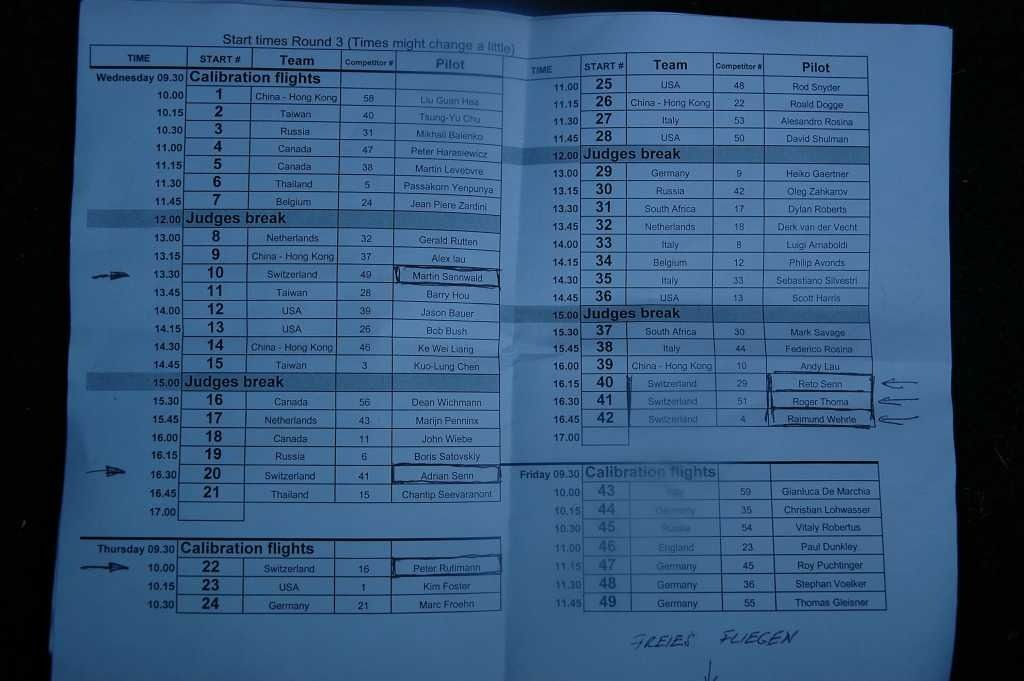 Start times Round 3 (Times might change a little)
TIME START # Team Competitor # Pilot
Wednesday 09.30 Calibration flights
10.00 1 China - Hong Kong 58 Liu Guan Hea
10.15 2 Taiwan 40 Tsung-Yu Chu
10.30 3 Russia 31 Mikhail Balenko
11.00 4 Canada 47 Peter Harasiewicz
11.15 5 Canada 38 Martin Levebvre
11.30 6 Thailand 5 Passakorn Yenpunya
11.45 7 Belgium 24 Jean Piere Zardini
12.00 Judges break
13.00 8 Netherlands 32 Gerald Rutten
13.15 9 China - Hong Kong 37 Alex lau
13.30 10 Switzerland 49 Martin Sannwald
13.45 11 Taiwan 28 Barry Hou
14.00 12 USA 39 Jason Bauer
14.15 13 USA 26 Bob Bush
14.30 14 China - Hong Kong 46 Ke Wei Liang
14.45 15 Taiwan 3 Kuo-Lung Chen
15.00 Judges break
15.30 16 Canada 56 Dean Wichmann
15.45 17 Netherlands 43 Marijn Penninx
16.00 18 Canada 11 John Wiebe
16.15 19 Russia 6 Boris Satovskiy
16.30 20 Switzerland 41 Adrian Senn
16.45 21 Thailand 15 Chantip Seevaranont
17.00
Thursday 09.30 Calibration flights
10.00 22 Switzerland 16 Peter Rutimann
10.15 23 USA 1 Kim Foster
10.30 24 Germany 21 Marc Froehn
TIME START # Team Competitor # Pilot
11.00 25 USA 48 Rod Snyder
11.15 26 China - Hong Kong 22 Roald Dogge
11.30 27 Italy 53 Alesandro Rosina
11.45 28 USA 50 David Shulman
12.00 Judges break
13.00 29 Germany 9 Heiko Gaertner
13.15 30 Russia 42 Oleg Zahkarov
13.30 31 South Africa 17 Dylan Roberts
13.45 32 Netherlands 18 Derk van der Vecht
14.00 33 Italy 8 Luigi Arnaboldi
14.15 34 Belgium 12 Philip Avonds
14.30 35 Italy 33 Sebastiano Silvestri
14.45 36 USA 13 Scott Harris
15.00 Judges break
15.30 37 South Africa 30 Mark Savage
15.45 38 Italy 44 Federico Rosina
16.00 39 China - Hong Kong 10 Andy Lau
16.15 40 Switzerland 29 Reto Senn
16.30 41 Switzerland 51 Roger Thoma
16.45 42 Switzerland 4 Raimund Wehrle
17.00
Friday 09.30 Calibration flights
10.00 43 Italy 59 Gianluca De Marchia
10.15 44 Germany 35 Christian Lohwasser
10.30 45 Russia 54 Vitaly Robertus
11.00 46 England 23 Paul Dunkley
11.15 47 Germany 45 Roy Puchtinger
11.30 48 Germany 36 Stephan Voelker
11.45 49 Germany 55 Thomas Gleisner
FREIES FLIEGEN